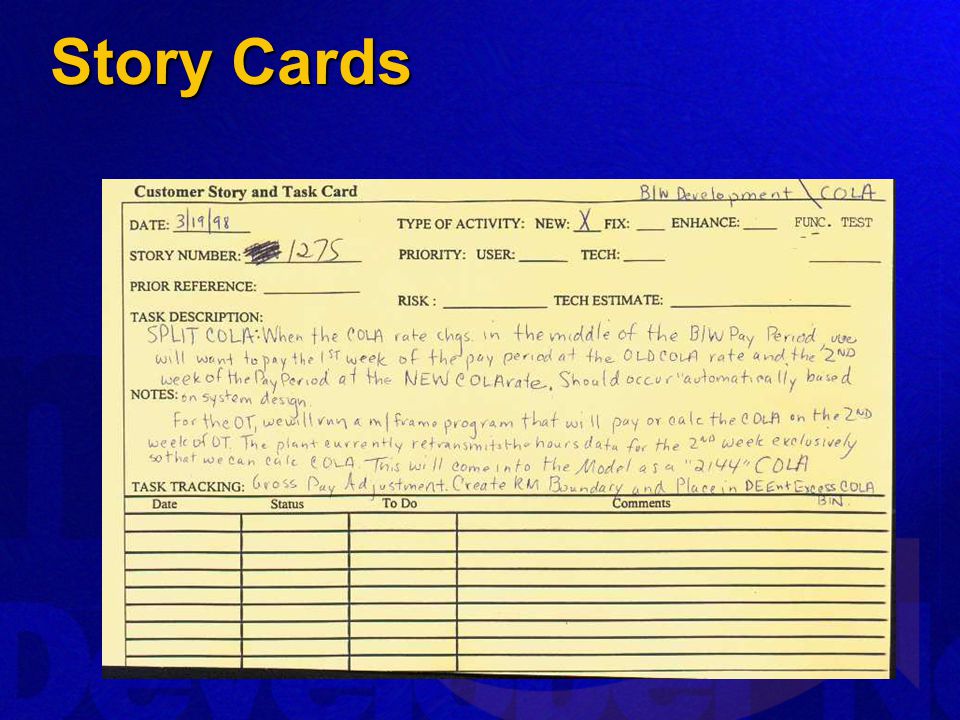 Story Cards
Customer Story and Task Card B/W Development \ COLA
DATE: 3/19/98 TYPE OF ACTIVITY: NEW: X FIX: ___ ENHANCE: ___ FUNC. TEST
STORY NUMBER: 1275 PRIORITY: USER: ___ TECH: ___
PRIOR REFERENCE: ___
RISK: ___ TECH ESTIMATE: ___
TASK DESCRIPTION:
SPLIT COLA: When the COLA rate chgs. in the middle of the B/W Pay Period, we
will want to pay the 1ST week of the pay period at the OLD COLA rate and the 2ND
week of the Pay Period at the NEW COLA rate. Should occur "automatically based
NOTES: on system design.
For the OT, we will run a m/frame program that will pay or calc the COLA on the 2ND
week of OT. The plant currently retransmits the hours data for the 2ND week exclusively
so that we can calc COLA. This will come into the Model as a "2144" COLA
TASK TRACKING: Gross Pay Adjustment. Create RM Boundary and Place in DEEnt Excess COLA
BIN.
Date Status To Do Comments